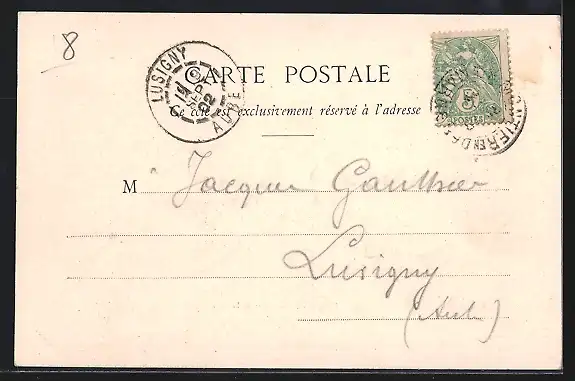 8
LUSIGNY
14
SEPT
02
AUBE
CARTE POSTALE
Ce côté est exclusivement réservé à l'adresse
5
POSTES
M Jacques Gauthier
Lusigny
(Aube)